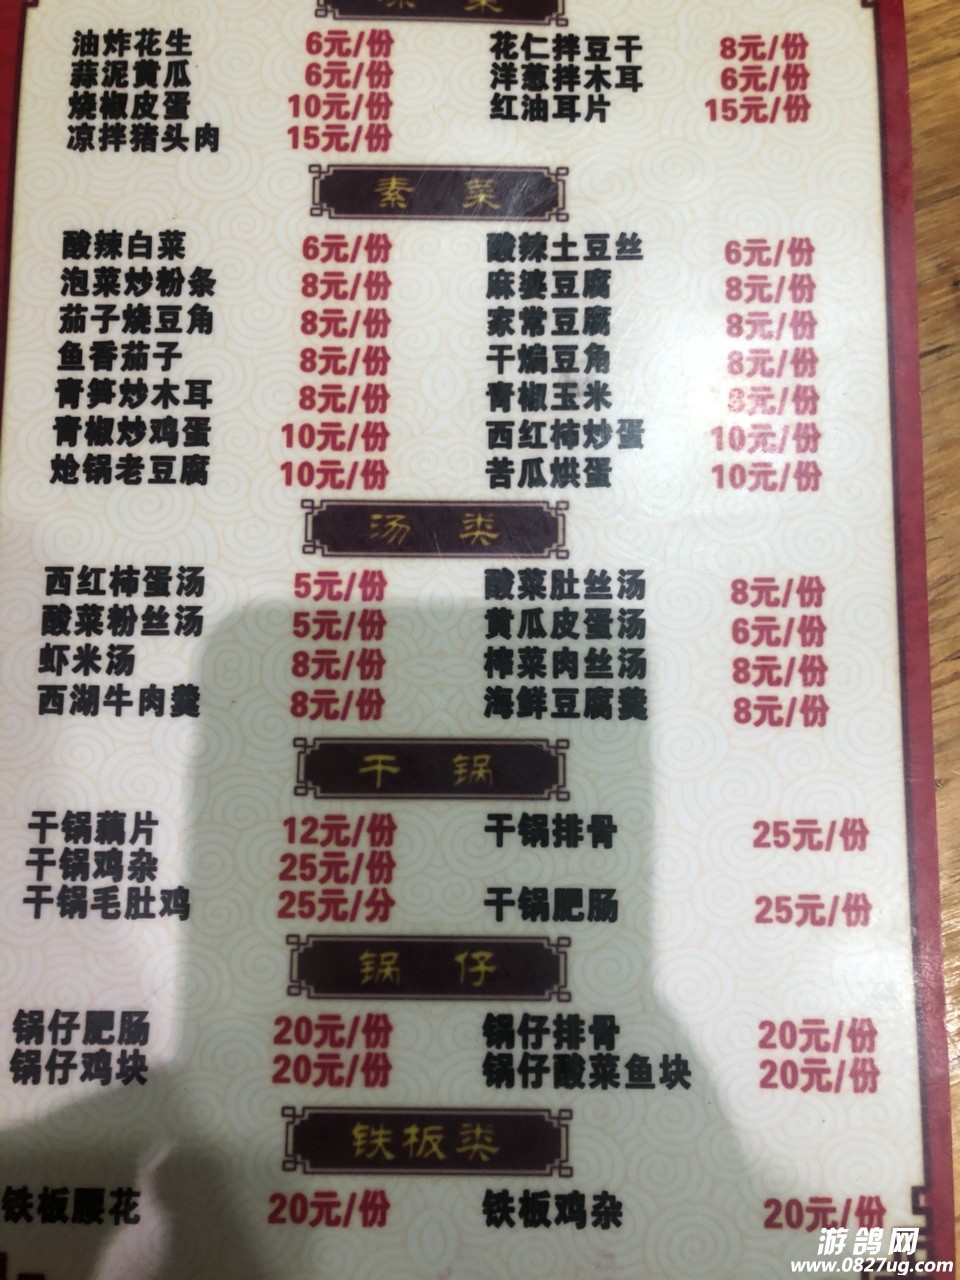 菜
油炸花生 6元/份 花仁拌豆干 8元/份
蒜泥黄瓜 6元/份 洋葱拌木耳 6元/份
烧椒皮蛋 10元/份 红油耳片 15元/份
凉拌猪头肉 15元/份
素 菜
酸辣白菜 6元/份 酸辣土豆丝 6元/份
泡菜炒粉条 8元/份 麻婆豆腐 8元/份
茄子烧豆角 8元/份 家常豆腐 8元/份
鱼香茄子 8元/份 干煸豆角 8元/份
青笋炒木耳 8元/份 青椒玉米 8元/份
青椒炒鸡蛋 10元/份 西红柿炒蛋 10元/份
炝锅老豆腐 10元/份 苦瓜烘蛋 10元/份
汤 类
西红柿蛋汤 5元/份 酸菜肚丝汤 8元/份
酸菜粉丝汤 5元/份 黄瓜皮蛋汤 6元/份
虾米汤 8元/份 榨菜肉丝汤 8元/份
西湖牛肉羹 8元/份 海鲜豆腐羹 8元/份
干 锅
干锅藕片 12元/份 干锅排骨 25元/份
干锅鸡杂 25元/份
干锅毛肚鸡 25元/分 干锅肥肠 25元/份
锅 仔
锅仔肥肠 20元/份 锅仔排骨 20元/份
锅仔鸡块 20元/份 锅仔酸菜鱼块 20元/份
铁板类
铁板腰花 20元/份 铁板鸡杂 20元/份
游鸽网
www.0827ug.com